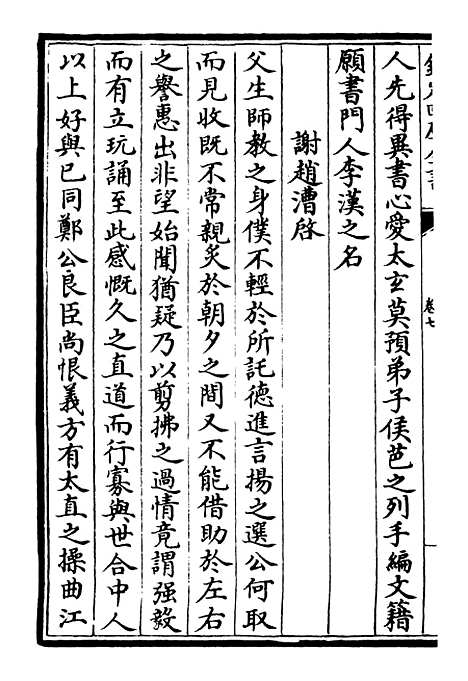 欽定四庫全書
卷七
人先得異書心愛太玄莫預弟子侯芭之列手編文籍
願書門人李漢之名
謝趙漕啓
父生師教之身僕不輕於所託德進言揚之選公何取
而見收既不常親炙於朝夕之間又不能借助於左右
之譽惠出非望始聞猶疑乃以剪拂之過情竟謂强毅
而有立玩誦至此感慨久之直道而行寡與世合中人
以上好與已同鄭公良臣尚恨義方有太直之操曲江